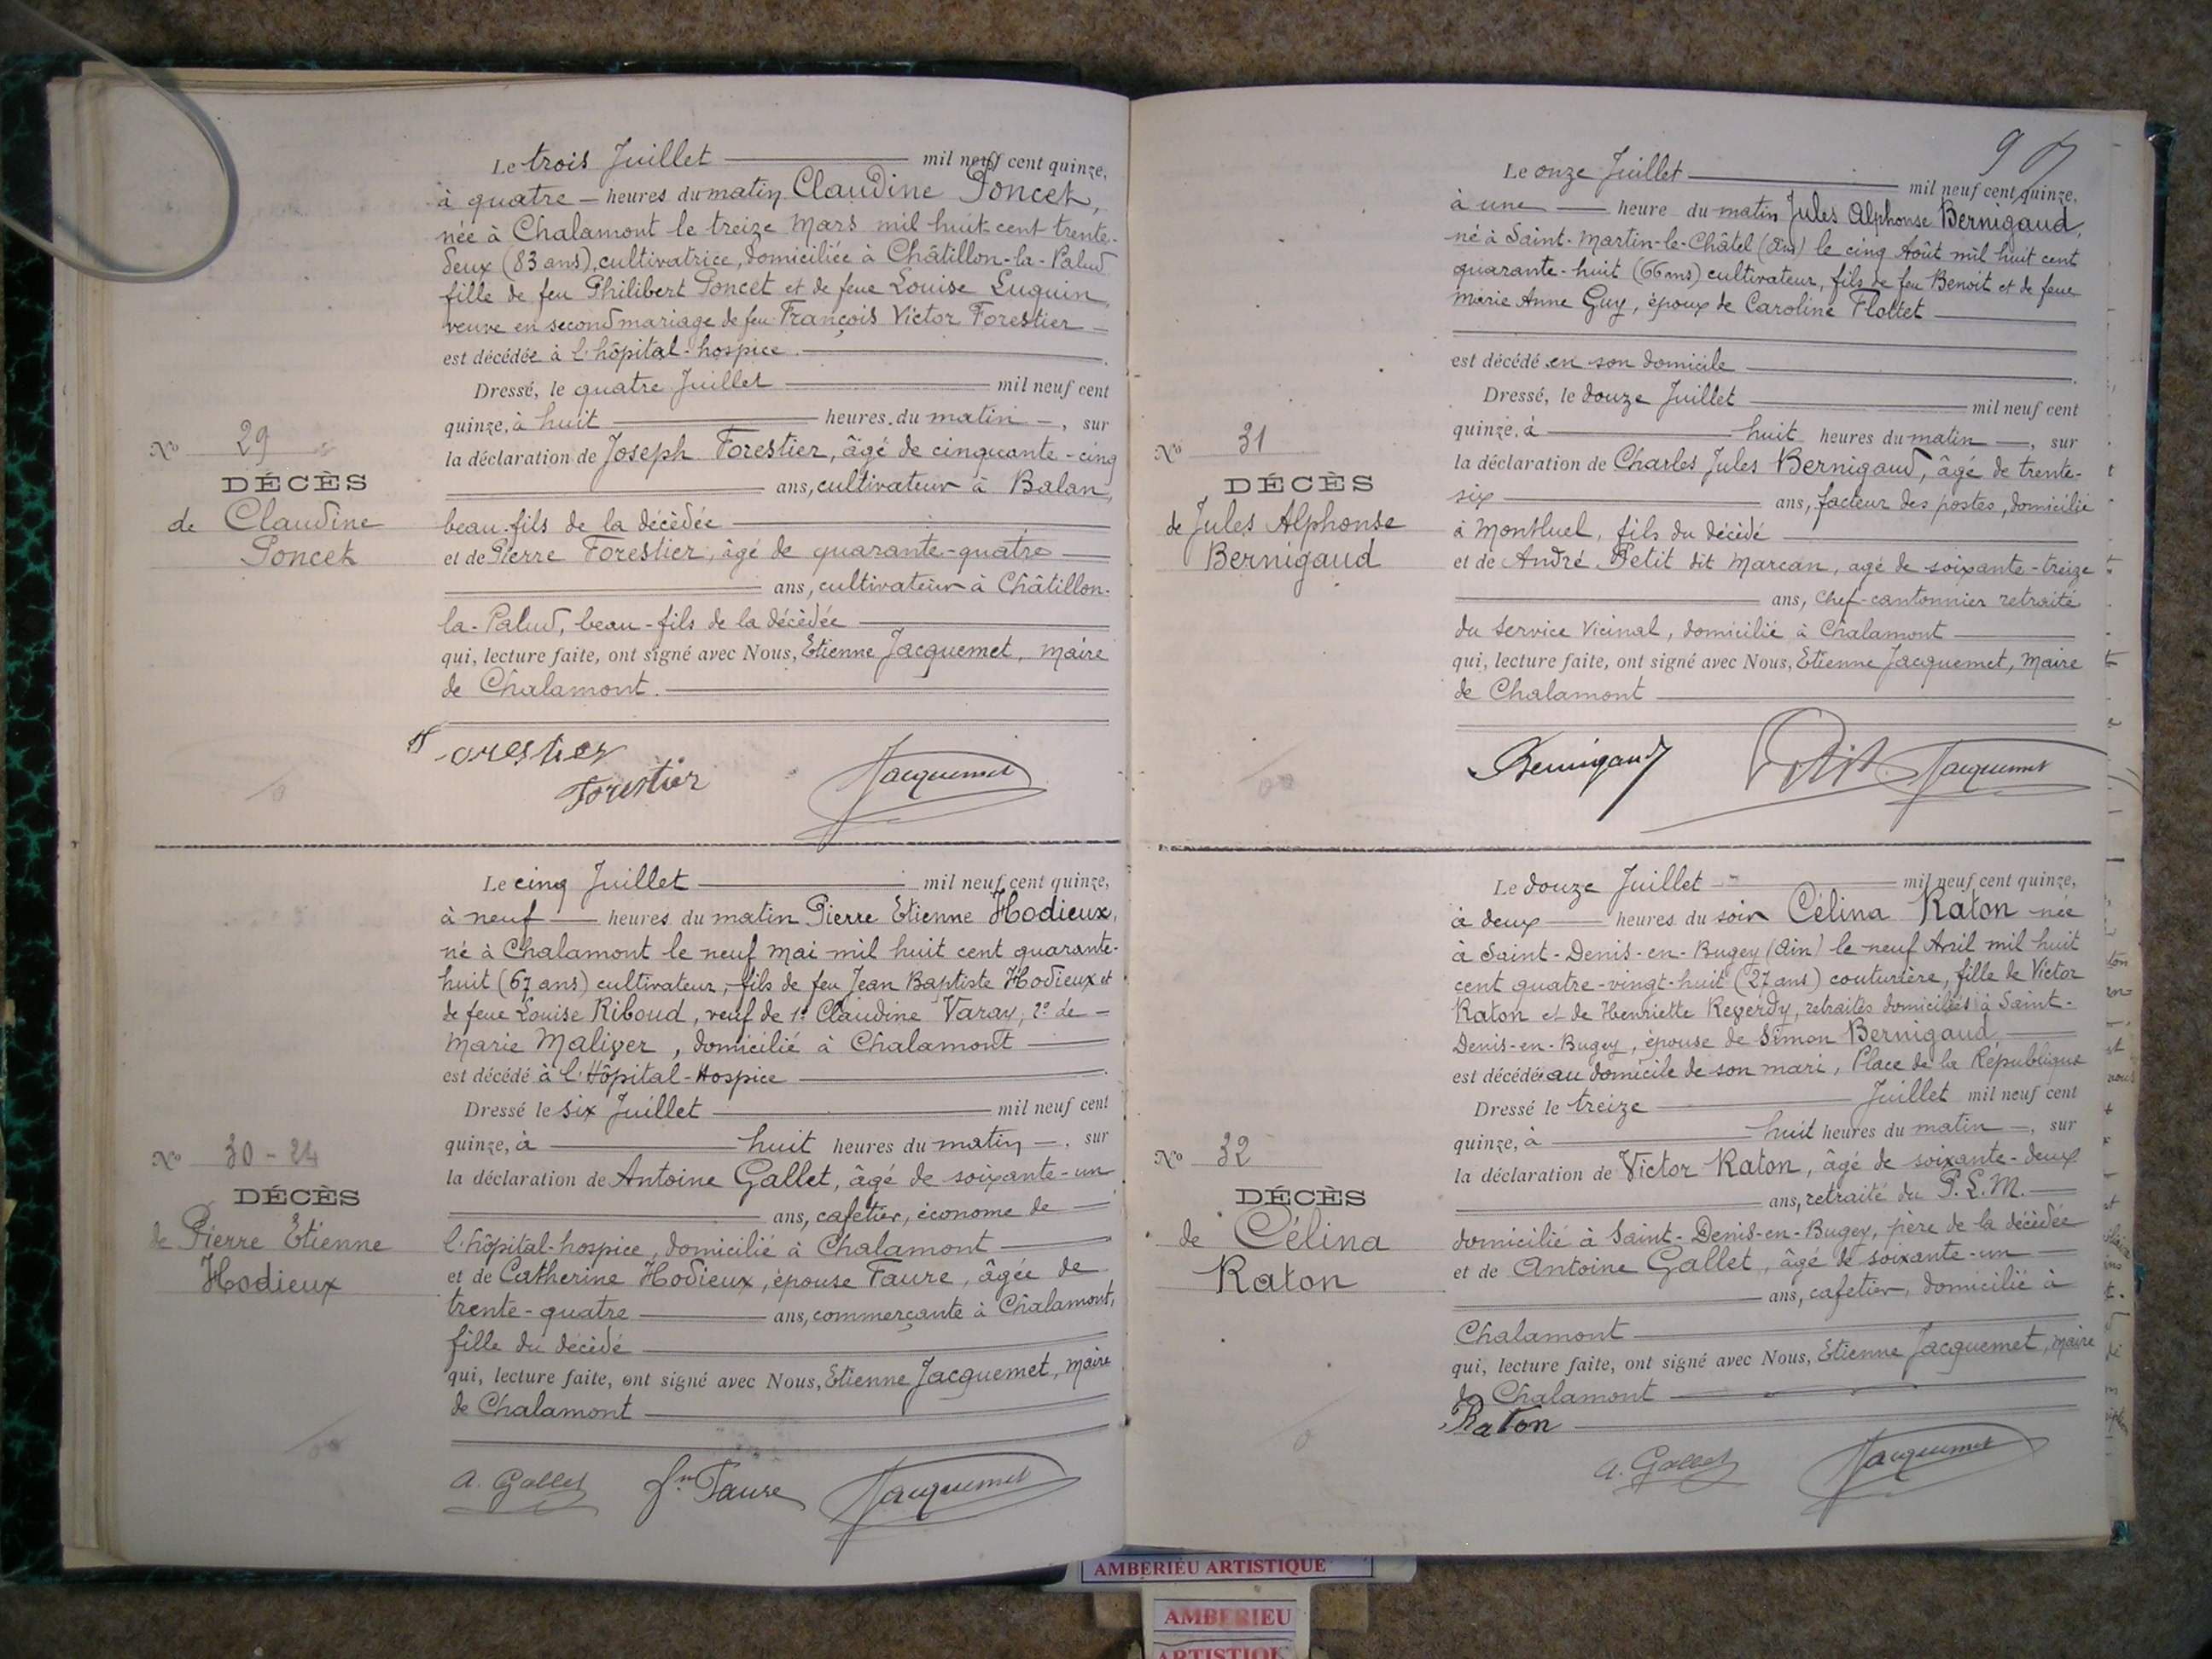 Le trois Juillet mil neuf cent quinze,
à quatre heures du matin Claudine Poncet,
née à Chalamont le treize Mars mil huit-cent trente-
deux (83 ans), cultivatrice, domiciliée à Châtillon-la-Palud
fille de feu Philibert Poncet et de feue Louise Luquin,
veuve en second mariage de feu François Victor Forestier
est décédée à l'hôpital-hospice.
Dressé, le quatre Juillet mil neuf cent
quinze, à huit heures du matin, sur
la déclaration de Joseph Forestier, âgé de cinquante-cinq
ans, cultivateur à Balan,
beau-fils de la décédée
et de Pierre Forestier, âgé de quarante-quatre
ans, cultivateur à Châtillon-
la-Palud, beau-fils de la décédée
qui, lecture faite, ont signé avec Nous, Etienne Jacquemet, Maire
de Chalamont.
No 29
DÉCÈS
de Claudine
Poncet
Forestier
Forestier
Jacquemet
Le cinq Juillet mil neuf cent quinze,
à neuf heures du matin Pierre Etienne Hodieux,
né à Chalamont le neuf Mai mil huit cent quarante-
huit (67 ans) cultivateur, fils de feu Jean Baptiste Hodieux et
de feue Louise Riboud, veuf de 1º Claudine Varay, 2º de
Marie Maliver, domicilié à Chalamont
est décédé à l'Hôpital-Hospice
Dressé le six Juillet mil neuf cent
quinze, à huit heures du matin, sur
la déclaration de Antoine Gallet, âgé de soixante-un
ans, cafetier, économe de
l'hôpital-hospice, domicilié à Chalamont
et de Catherine Hodieux, épouse Faure, âgée de
trente-quatre ans, commerçante à Chalamont,
fille du décédé
qui, lecture faite, ont signé avec Nous, Etienne Jacquemet, Maire
de Chalamont
No 30-24
DÉCÈS
de Pierre Etienne
Hodieux
A. Gallet
Faure
Jacquemet
Le onze Juillet mil neuf cent quinze,
à une heure du matin Jules Alphonse Bernigaud,
né à Saint-Martin-le-Châtel (Ain) le cinq Août mil huit cent
quarante-huit (66 ans) cultivateur, fils de feu Benoit et de feue
Marie Anne Guy, époux de Caroline Flottet
est décédé en son domicile
Dressé, le douze Juillet mil neuf cent
quinze, à huit heures du matin, sur
la déclaration de Charles Jules Bernigaud, âgé de trente-
six ans, facteur des postes, domicilié
à Montluel, fils du décédé
et de André Petit dit Marcan, agé de soixante-treize
ans, Chef-cantonnier retraité
du Service Vicinal, domicilié à Chalamont
qui, lecture faite, ont signé avec Nous, Etienne Jacquemet, Maire
de Chalamont
No 31
DÉCÈS
de Jules Alphonse
Bernigaud
Bernigaud
Petit
Jacquemet
Le douze Juillet mil neuf cent quinze,
à deux heures du soir Célina Raton née
à Saint-Denis-en-Bugey (Ain) le neuf Avril mil huit
cent quatre-vingt-huit (27 ans) couturière, fille de Victor
Raton et de Henriette Reverdy, retraités domiciliés à Saint-
Denis-en-Bugey, épouse de Simon Bernigaud,
est décédée au domicile de son mari, Place de la République
Dressé le treize Juillet mil neuf cent
quinze, à huit heures du matin, sur
la déclaration de Victor Raton, âgé de soixante-deux
ans, retraité du P.L.M.
domicilié à Saint-Denis-en-Bugey, père de la décédée
et de Antoine Gallet, âgé de soixante-un
ans, cafetier, domicilié à
Chalamont
qui, lecture faite, ont signé avec Nous, Etienne Jacquemet, Maire
de Chalamont
No 32
DÉCÈS
de Célina
Raton
Raton
A. Gallet
Jacquemet
AMBERIEU ARTISTIQUE
AMBERIEU